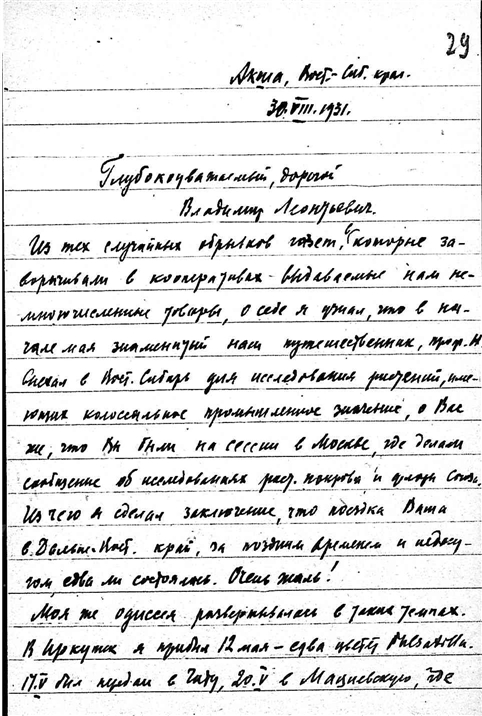 29
Акша, Вост.-Сиб. края.
30.VIII.1931.
Глубокоуважаемый, дорогой
Владимир Леонтьевич.
Из тех случайных обрывков газет, в которые за-
ворачивали в кооперативах выдаваемые нам не-
многочисленные товары, о себе я узнал, что в на-
чале мая знаменитый наш путешественник, проф. Н.
съехал в Вост. Сибирь для исследования растений, име-
ющих колоссальное промышленное значение, о Вас
же, что Вы были на сессии в Москве, где делали
сообщение об исследованиях раст. покрова и флоры Союза.
Из чего я сделал заключение, что поездка Ваша
в Дальне-Вост. край, за поздним временем и недосу-
гом, едва ли состоялась. Очень жаль!
Моя же одиссея развертывалась в таких темпах.
В Иркутск я прибыл 12 мая – едва цветет Pulsatilla.
17.V был передан в Читу, 20.V в Мациевскую, где